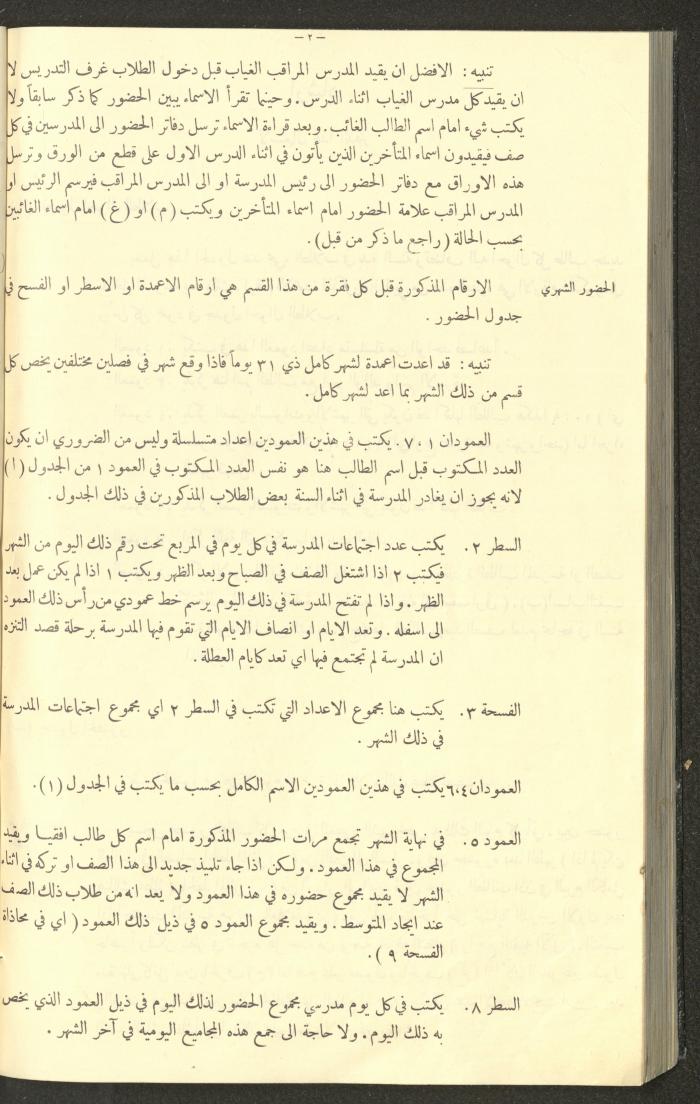 — ٢ —
تنبيه : الافضل ان يقيد المدرس المراقب الغياب قبل دخول الطلاب غرف التدريس لا
ان يقيد كل مدرس الغياب اثناء الدرس . وحينما تقرأ الاسماء يبين الحضور كما ذكر سابقاً ولا
يكتب شيء امام اسم الطالب الغائب . وبعد قراءة الاسماء ترسل دفاتر الحضور الى المدرسين في كل
صف فيقيدون اسماء المتأخرين الذين يأتون في اثناء الدرس الاول على قطع من الورق وترسل
هذه الاوراق مع دفاتر الحضور الى رئيس المدرسة او الى المدرس المراقب فيرسم الرئيس او
المدرس المراقب علامة الحضور امام اسماء المتأخرين ويكتب ( م ) او ( غ ) امام اسماء الغائبين
بحسب الحالة ( راجع ما ذكر من قبل ) .
الحضور الشهري الارقام المذكورة قبل كل فقرة من هذا القسم هي ارقام الاعمدة او الاسطر او الفسح في
جدول الحضور .
تنبيه : قد اعدت اعمدة لشهر كامل ذي ٣١ يوماً فاذا وقع شهر في فصلين مختلفين يخص كل
قسم من ذلك الشهر بما اعد لشهر كامل .
العمودان ١ ، ٧ . يكتب في هذين العمودين اعداد متسلسلة وليس من الضروري ان يكون
العدد المكتوب قبل اسم الطالب هنا هو نفس العدد المكتوب في العمود ١ من الجدول ( ١ )
لانه يجوز ان يغادر المدرسة في اثناء السنة بعض الطلاب المذكورين في ذلك الجدول .
السطر ٢ . يكتب عدد اجتماعات المدرسة في كل يوم في المربع تحت رقم ذلك اليوم من الشهر
فيكتب ٢ اذا اشتغل الصف في الصباح وبعد الظهر ويكتب ١ اذا لم يكن عمل بعد
الظهر . واذا لم تفتح المدرسة في ذلك اليوم يرسم خط عمودي من رأس ذلك العمود
الى اسفله . وتعد الايام او انصاف الايام التي تقوم فيها المدرسة برحلة قصد التنزه
ان المدرسة لم تجتمع فيها اي تعد كايام العطلة .
الفسحة ٣ . يكتب هنا مجموع الاعداد التي تكتب في السطر ٢ اي مجموع اجتماعات المدرسة
في ذلك الشهر .
العمودان ٤،٦ يكتب في هذين العمودين الاسم الكامل بحسب ما يكتب في الجدول (١) .
العمود ٥ . في نهاية الشهر تجمع مرات الحضور المذكورة امام اسم كل طالب افقيا ويقيد
المجموع في هذا العمود . ولكن اذا جاء تلميذ جديد الى هذا الصف او تركه في اثناء
الشهر لا يقيد مجموع حضوره في هذا العمود ولا يعد انه من طلاب ذلك الصف
عند ايجاد المتوسط . ويقيد مجموع العمود ٥ في ذيل ذلك العمود ( اي في محاذاة
الفسحة ٩ ) .
السطر ٨ . يكتب في كل يوم مدرسي مجموع الحضور لذلك اليوم في ذيل العمود الذي يخص
به ذلك اليوم . ولا حاجة الى جمع هذه المجاميع اليومية في آخر الشهر .